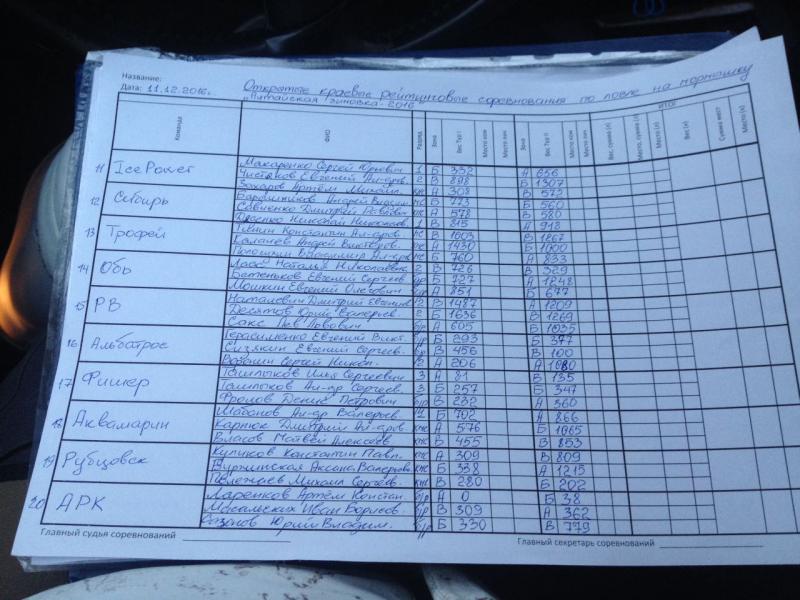 Название: Открытые краевые рейтинговые соревнования по ловле на мормышку
Дата: 11.12.2016г. "Алтайская зимовка-2016"
ИТОГ
Команда ФИО Разряд Зона Вес Тур I Место зон Место лич. Зона Вес Тур II Место зон Место лич. Вес, сумма (л) Место, сумма (л) Место (л) Вес (к) Сумма мест Место (к)
11 Ice Power Макаренко Сергей Юрьевич 1 Б 332 А 656
Чистяков Евгений Ал-дров. 2 В 898 Б 1307
Захаров Артём Михайл. кмс А 308 В 572
12 Сибирь Барышников Андрей Владим. кмс В 773 Б 560
Савиенко Дмитрий кмс А 578 В 580
Николай Николаев. 1 Б 815 А 918
13 Трофей Константин Ал-дров. кмс В 1603 В 1267
Андрей Викторов. кмс А 1430 Б 1000
Владимир Ал-др. кмс Б 760 А 833
14 Обь Наталья Николаевна 2 В 726 В 329
Батеньков Евгений Сергеев. б/р Б 727 А 1248
Мошкин Евгений Олегович б/р А 851 Б 677
15 РВ Дмитрий Евгениев. 2 В 1487 А 1209
Десятов Юрий Валерьев. 2 Б 1636 В 1269
Сакс Лев Львович б/р А 605 Б 1035
16 Альбатрос Герасименко Евгений Викт. б/р Б 293 Б 377
Сизякин Евгений Сергеев. б/р В 456 В 100
Сергей Никол. 2 А 206 А 1080
17 Фишер Ташлыков Илья Сергеевич 3 А 81 Б 135
Ташлыков Ал-др Сергеев. 3 Б 257 В 347
Фролов Денис Петрович б/р В 232 А 360
18 Аквамарин Шабанов Ал-др Валерьев. Б 702 А 866
Карнюк Дмитрий Ал-дров кмс А 576 Б 1065
Власов Матвей Алексеев. кмс В 455 В 853
19 Рубцовск Куликов Константин Павл. кмс А 309 В 809
Виржинская Аксана Валерьев. кмс Б 338 А 1215
Полежаев Михаил Сергеев. кмс В 280 Б 202
20 АРК Ларенков Артём Констан. б/р А 0 Б 38
Иван Борисов. б/р В 309 А 362
Сазонов Юрий Владим. б/р Б 330 В 779
Главный судья соревнований Главный секретарь соревнований